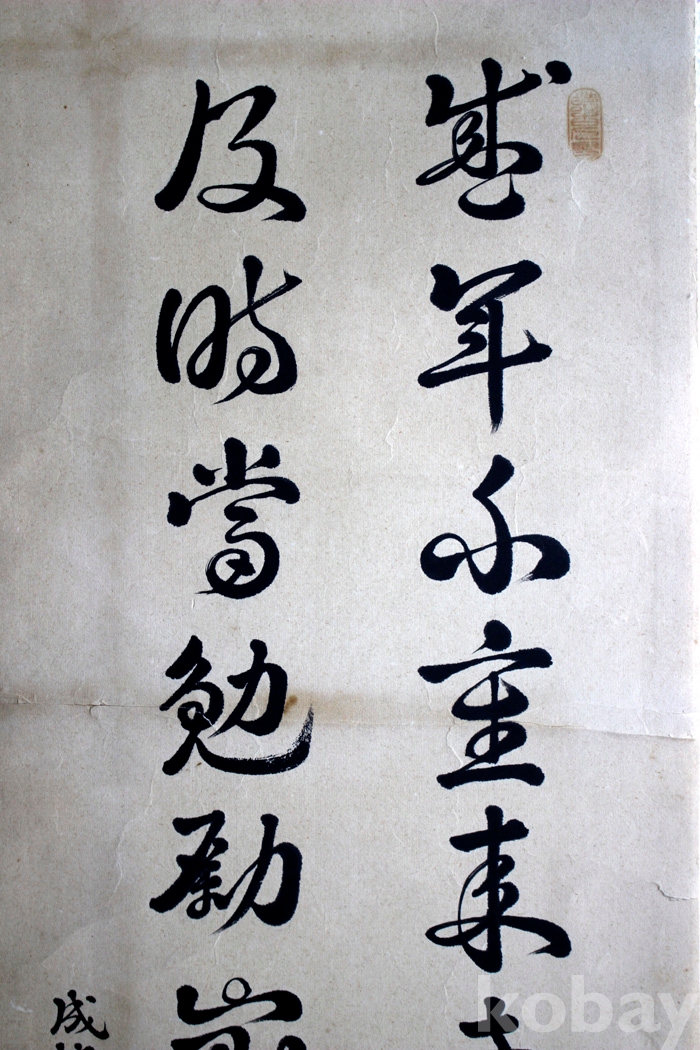 盛年不重来
及時當勉勵
成
kobay